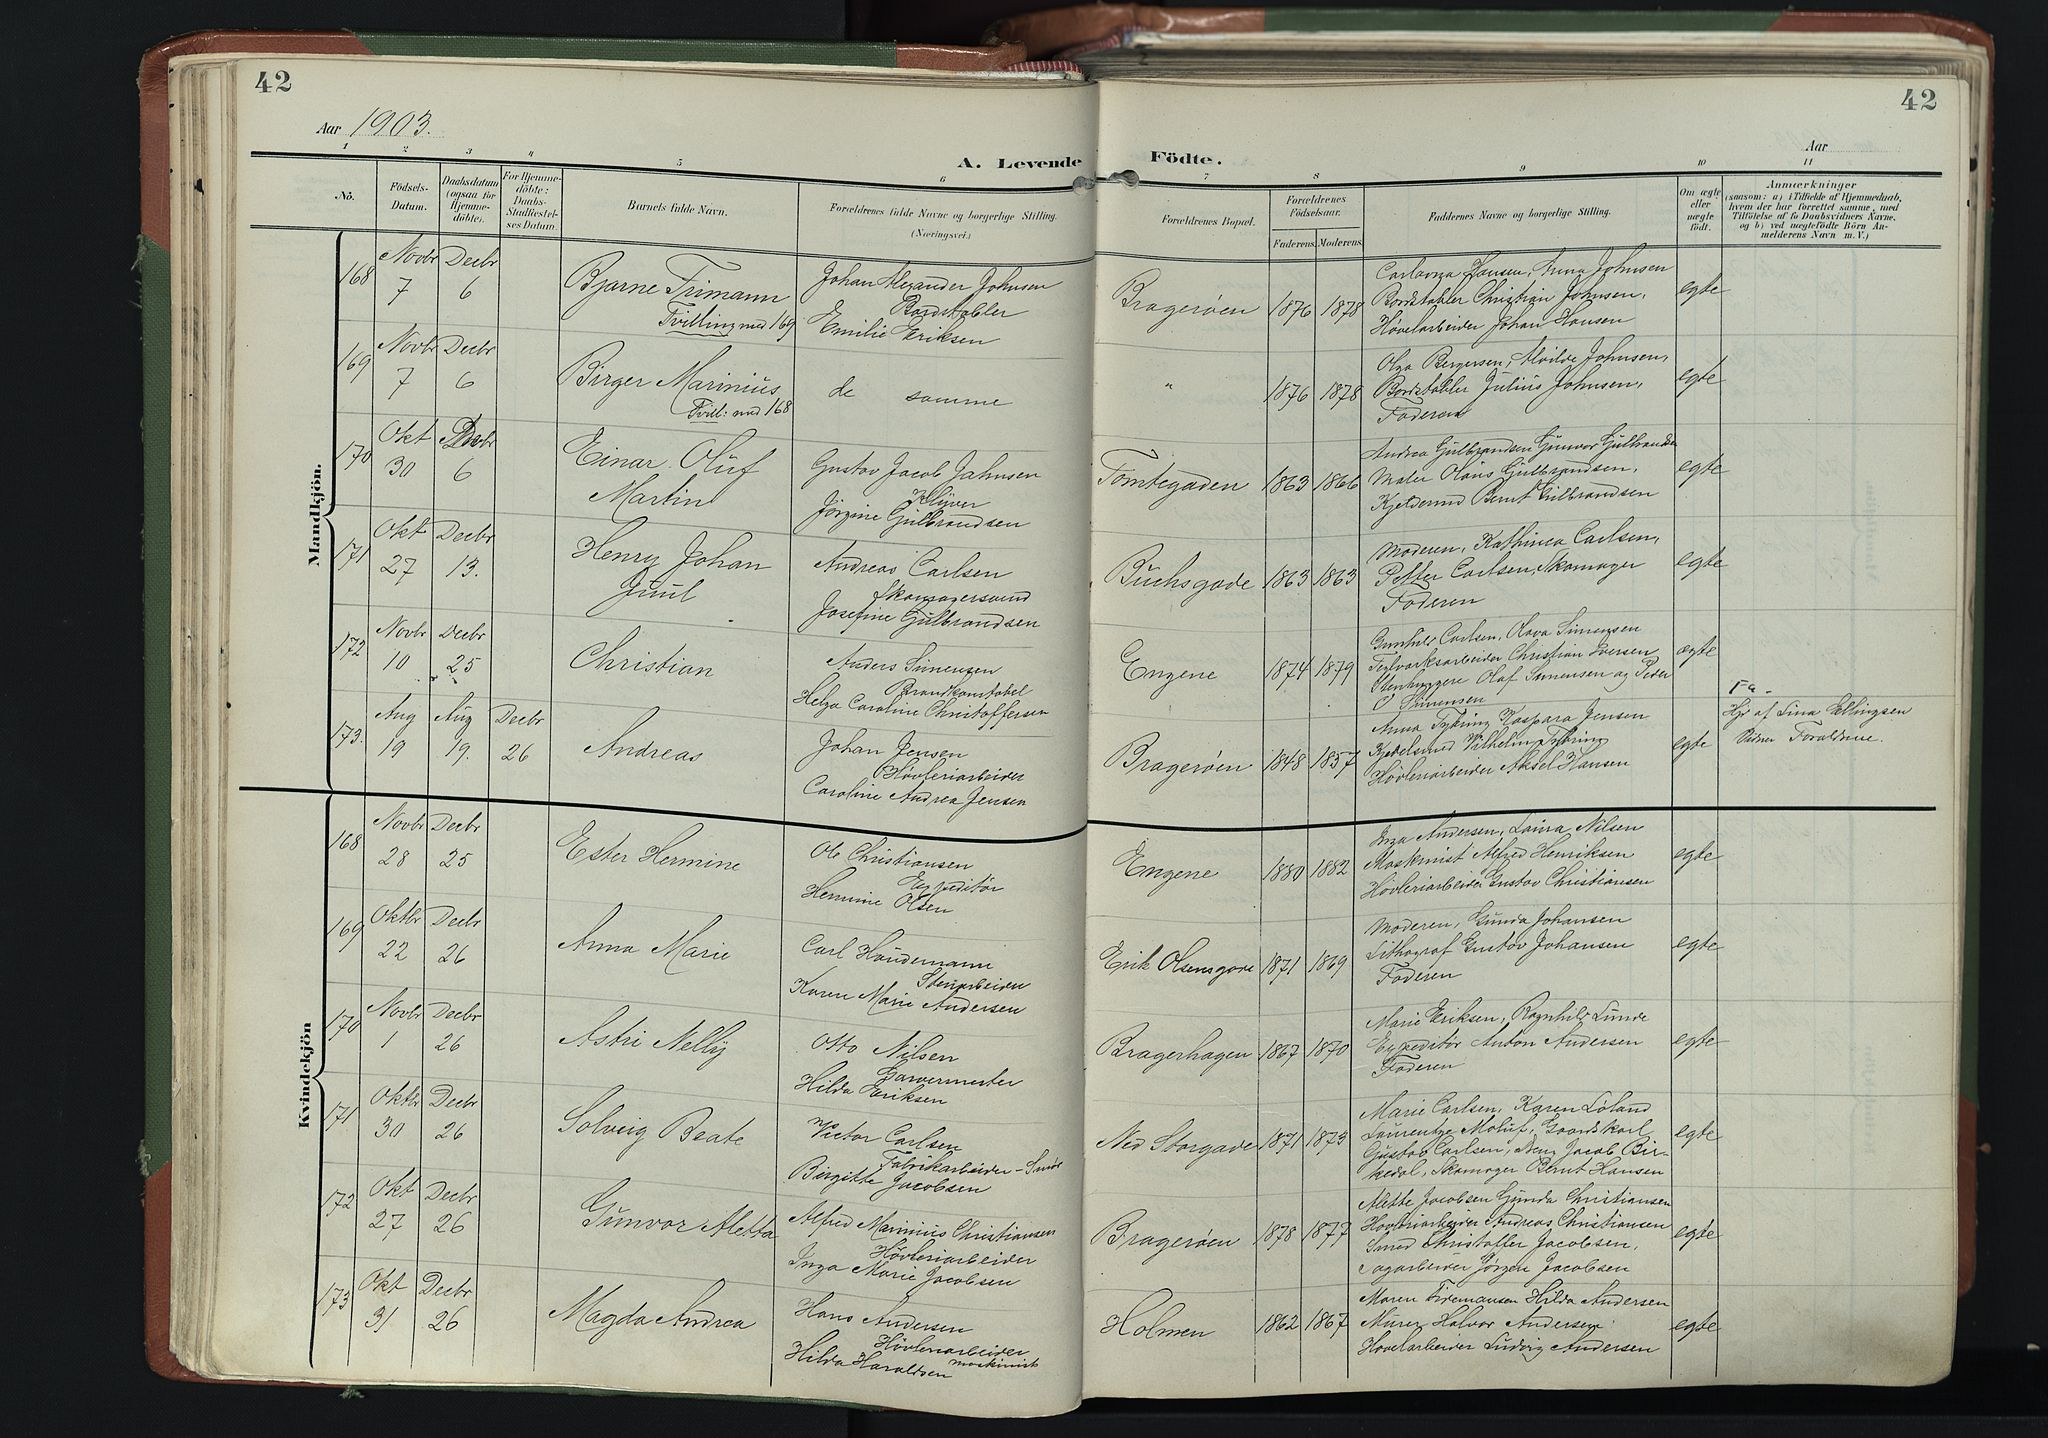 42
42
Aar 1903.
Aar
A. Levende Födte.
1 2 3 4 5 6 7 8 9 10 11
No.
Födsels-Datum.
Daabsdatum (ogsaa for Hjemme-döbte).
For Hjemme-döbte: Daabs-Stadfæstel-ses Datum.
Barnets fulde Navn.
Forældrenes fulde Navne og borgerlige Stilling.
(Næringsvei.)
Forældrenes Bopæl.
Forældrenes Födselsaar.
Faderens. Moderens.
Faddernes Navne og borgerlige Stilling.
Om ægte eller uægte födt.
Anmærkninger
(saasom: a) i Tilfælde af Hjemmedaab,
hvem der har forrettet samme, med
Tilföielse af to Daabsvidners Navne,
og b) ved uægtefödte Börn An-
melderens Navn m. V.)
Mandkjön.
168 Novbr 7 Decbr 6
Bjarne Trimann
Tvilling med 169
Johan Alexander Johnsen
Bordstabler
Emilie Eriksen
Bragerøen 1876 1878
Hansen, Anna Johnsen
Bordstabler Christian Johnsen,
Høvelarbeider Johan Hansen
egte
169 Novbr 7 Decbr 6
Birger Marinius
Tvill: med 168
de samme
" 1876 1878
Olga Bergersen, Alvilde Johnsen,
Bordstabler Julius Johnsen,
Faderen
egte
170 Okt 30 Decbr 6
Einar Oluf
Martin
Gustav Jacob Jahnsen
Jørgine Gulbrandsen
Tomtegaden 1863 1866
Andrea Gulbrandsen Gunvor Gulbrandsen
Maler Olaus Gulbrandsen,
Kjeldsmed Bernt Gulbrandsen
egte
171 Okt 27 Decbr 13.
Henry Johan
Juul
Andreas Carlsen
Skomagersvend
Josefine Gulbrandsen
Buchsgade 1863 1863
Moderen, Kathinca Carlsen,
Petter Carlsen, Skomager
Faderen
egte
172 Novbr 10 Decbr 25
Christian
Anders Simensen
Brandkonstabel
Helga Caroline Christoffersen
Engene 1874 1879
Gunhild Carlsen, Olava Simensen
Christian Iversen
Stenhuggere Olaf Simensen og Peder
Simensen
ægte
173. Aug 19 Aug 19. Decbr 26
Andreas
Johan Jensen
Høvleriarbeider
Caroline Andrea Jensen
Bragerøen 1848 1857
Anna Tykring Kaspara Jensen
Kjedelsmed Vilhelm Tykring
Høvleriarbeider Aksel Hansen
egte
Hjd af Lina Ellingsen
Vidner Forældrene.
Kvindekjön
168 Novbr 28 Decbr 25
Ester Hermine
Ole Christiansen
Expeditør
Hermine Olsen
Engene 1880 1882
Inga Andersen, Laura Nilsen
Maskinist Alfred Henriksen
Høvleriarbeider Gustav Christiansen
egte
169 Oktbr 22 Decbr 26
Anna Marie
Carl Haudemann
Stenarbeider
Karen Marie Andersen
Erik Olsensgade 1871 1869
Moderen, Gunda Johansen
Lithograf Gustav Johansen
Faderen
egte
170 Novbr 1 Decbr 26
Astri Nelly
Otto Nilsen
Garvermester
Hilda Eriksen
Bragerhagen 1867 1870
Marie Eriksen, Ragnhild Lunde
Expeditør Anton Andersen
Faderen
egte
171 Oktbr 30 Decbr 26
Solveig Beate
Victor Carlsen
Fabrikarbeider - Smør
Birgitte Jacobsen
Ned Storgade 1871 1873
Marie Carlsen, Karen Loland
Laurentze Moluf, Gaardskarl
Gustav Carlsen, Henr Jacob Bir-
kedal, Skomager Bernt Hansen
egte
172 Okt 27 Decbr 26
Gunvor Aletta
Alfred Marinius Christiansen
Høvleriarbeider
Inga Marie Jacobsen
Bragerøen 1878 1877
Alette Jacobsen Gunda Christiansen
Høvleriarbeider Andreas Christiansen
Smed Christoffer Jacobsen,
Sagarbeider Jørgen Jacobsen
egte
173 Okt 31 Decbr 26
Magda Andrea
Hans Andersen
Høvleriarbeider
Maskinist
Hilda Haraldsen
Holmen 1862 1867
Maren Hilda Andersen
Murer Halvor Andersen
Høvelarbeider Ludvig Andersen
egte